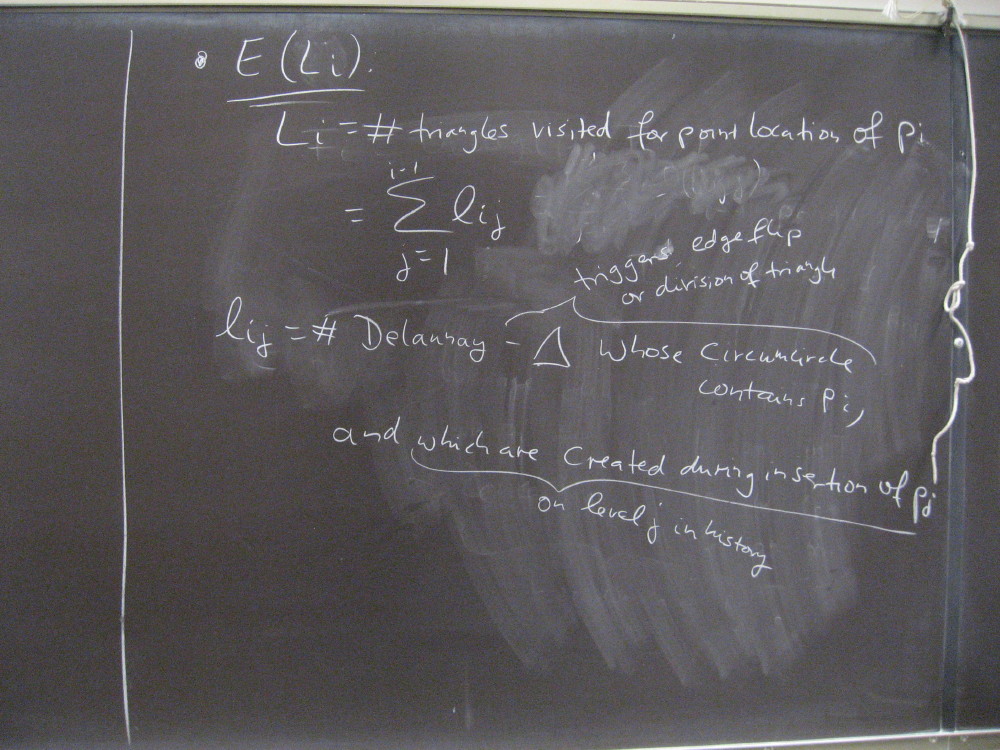 • E(Li).
Li = # triangles visited for point location of pi
i-1
= Σ lij
j=1
triggers edge flip
or division of triangle
lij = # Delaunay - △ whose circumcircle
contains pi,
and which are created during insertion of pj
on level j in history